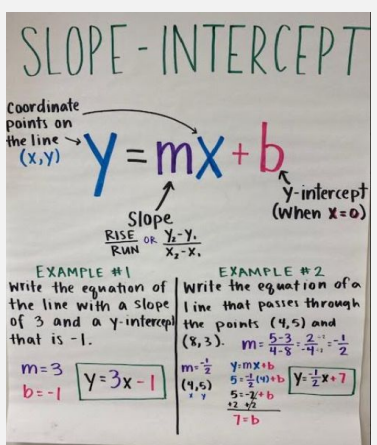 SLOPE-INTERCEPT
Coordinate
points on
the line
(x,y)
y = mx + b
y-intercept
(when x=0)
Slope
RISE/RUN OR Y₂-Y₁/X₂-X₁
EXAMPLE #1
Write the equation of
the line with a slope
of 3 and a y-intercept
that is -1.
m=3
b=-1
y=3x-1
EXAMPLE #2
Write the equation of a
line that passes through
the points (4,5) and
(8,3). m= 5-3/4-8 = 2/-4 = -1/2
m=-1/2
(4,5)
x y
y=mx+b
5=-1/2(4)+b
5=-2+b
+2 +2
7=b
y=-1/2x+7